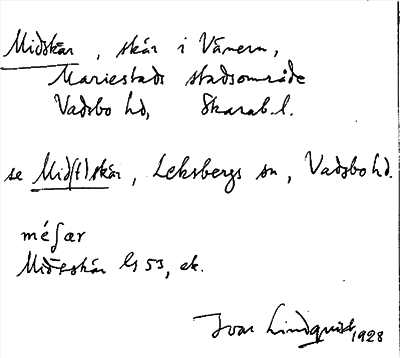 Midskär, skär i Vänern,
Mariestads stadsområde
Vadsbo hd, Skarab. l.
se Mid(t)skär, Leksbergs sn, Vadsbo hd.
Midskär GS 53, ek.
Ivar Lindquist, 1928